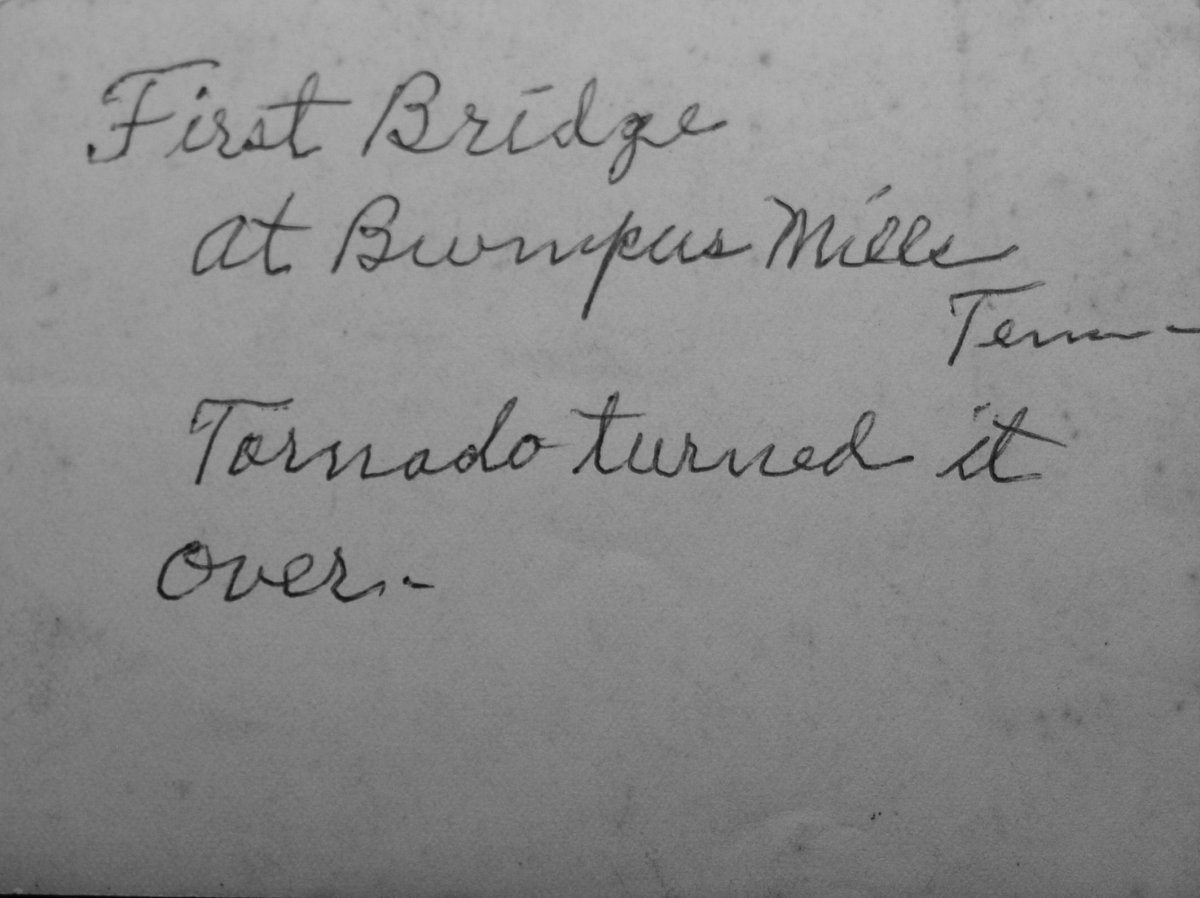 First Bridge
at Bumpus Mills
Tenn-
Tornado turned it
over.-